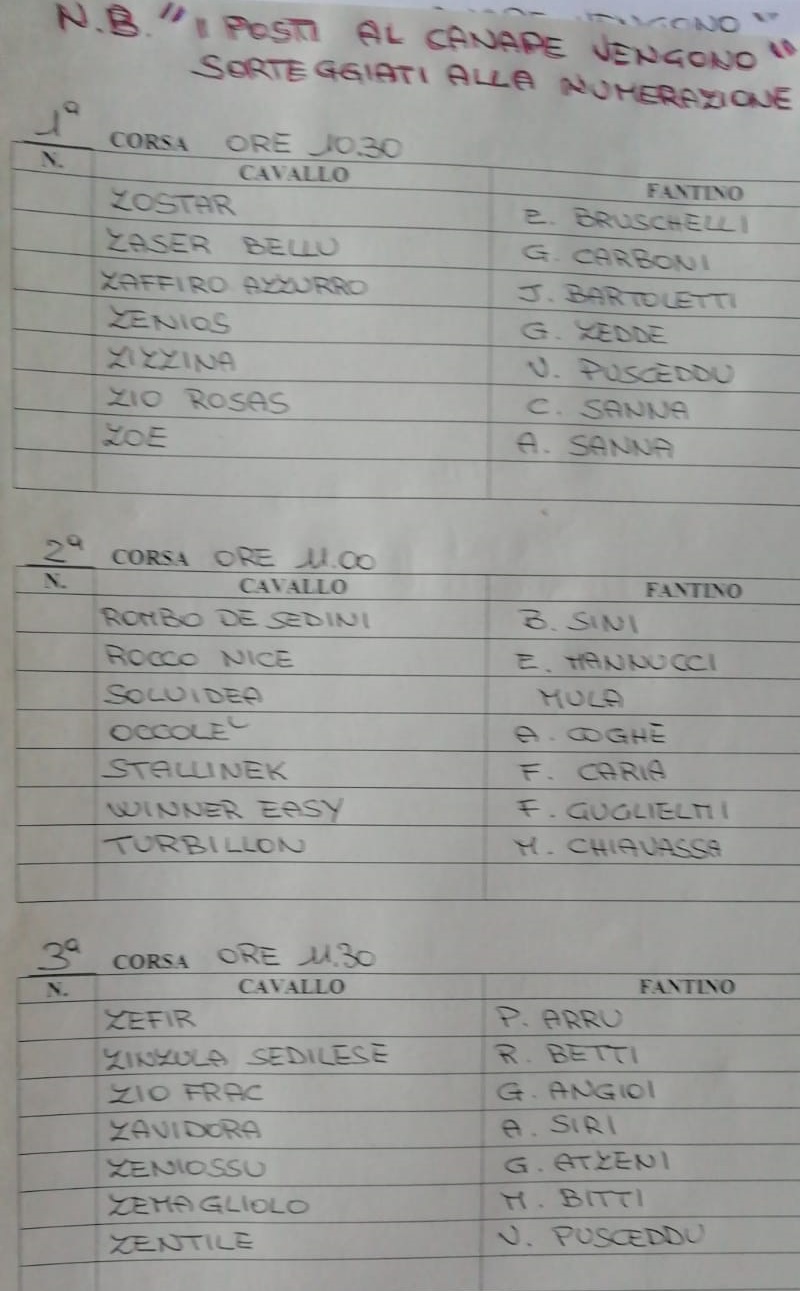 VENGONO"
N.B. "I POSTI AL CANAPE VENGONO"
SORTEGGIATI ALLA NUMERAZIONE
1ª CORSA ORE 10.30
N. CAVALLO FANTINO
ZOSTAR E. BRUSCHELLI
ZASER BELLU G. CARBONI
ZAFFIRO AZZURRO J. BARTOLETTI
ZENIOS G. ZEDDE
ZIZZINA V. PUSCEDDU
ZIO ROSAS C. SANNA
ZOE A. SANNA
2ª CORSA ORE 11.00
N. CAVALLO FANTINO
ROMBO DE SEDINI B. SINI
ROCCO NICE E. MANNUCCI
SOLUIDEA MULA
OCCOLE' A. COGHE
STALLINEK F. CARIA
WINNER EASY F. GUGLIELMI
TURBILLON M. CHIAVASSA
3ª CORSA ORE 11.30
N. CAVALLO FANTINO
ZEFIR P. ARRU
ZINZULA SEDILESE R. BETTI
ZIO FRAC G. ANGIOI
ZAVIDORA A. SIRI
ZENIOSSU G. ATZENI
ZEMAGLIOLO M. BITTI
ZENTILE V. PUSCEDDU